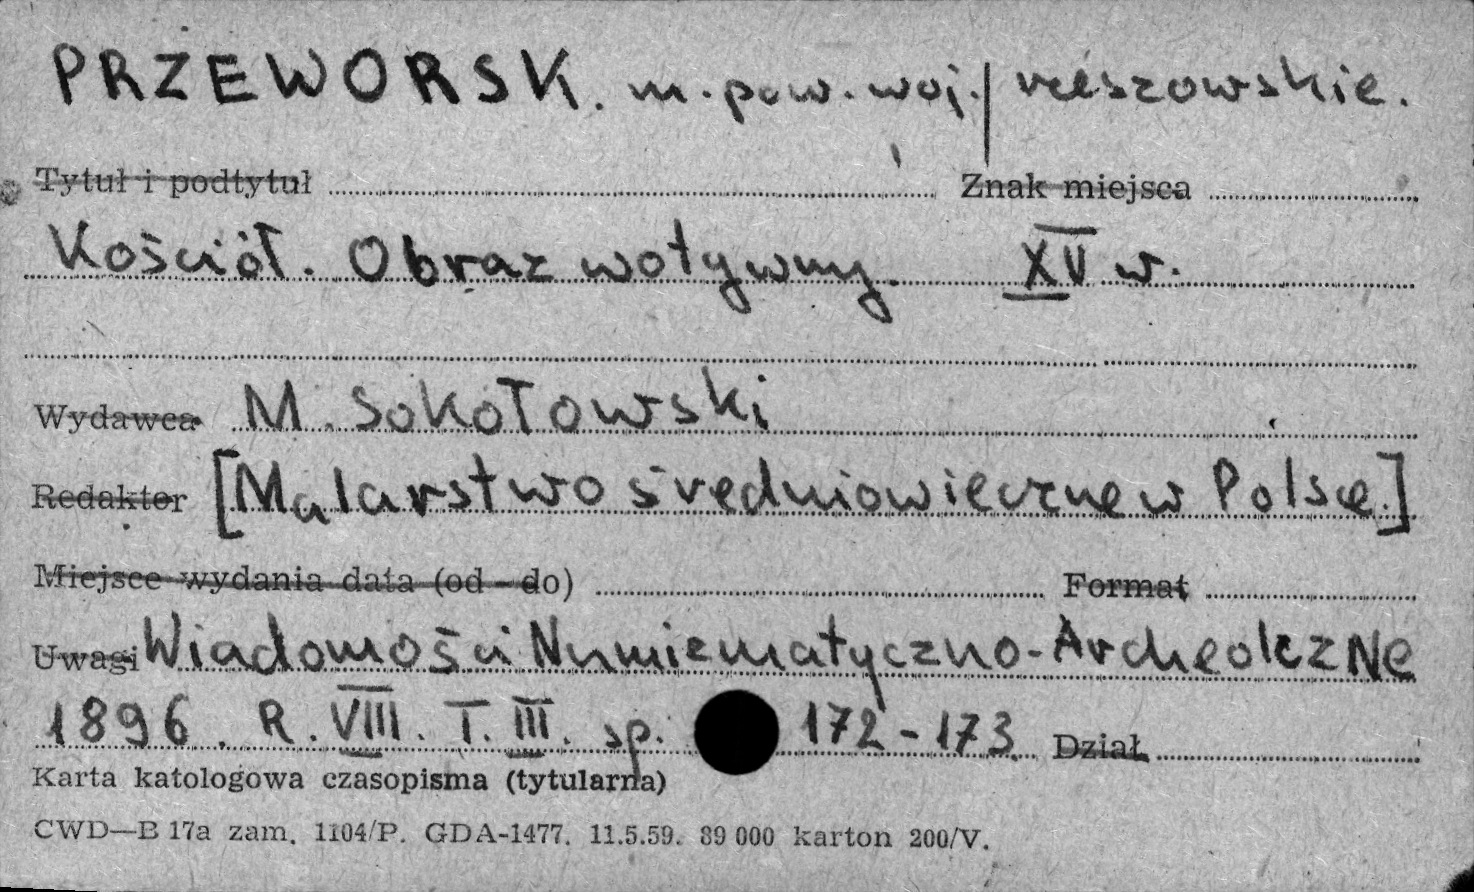 PRZEWORSK. m. pow. woj. | rzeszowskie.
Tytuł i podtytuł Znak miejsca
Kościół. Obraz wotywny. XV w.
Wydawca M. Sokołowski
Redaktor [Malarstwo średniowieczne w Polsce.]
Miejsce wydania data (od - do) Format
Uwagi Wiadomości Numizmatyczno-Archeolczne
1896. R. VIII. T. III. sp. 172-173 Dział
Karta katologowa czasopisma (tytularna)
CWD—B 17a zam. 1104/P. GDA-1477. 11.5.59. 89 000 karton 200/V.